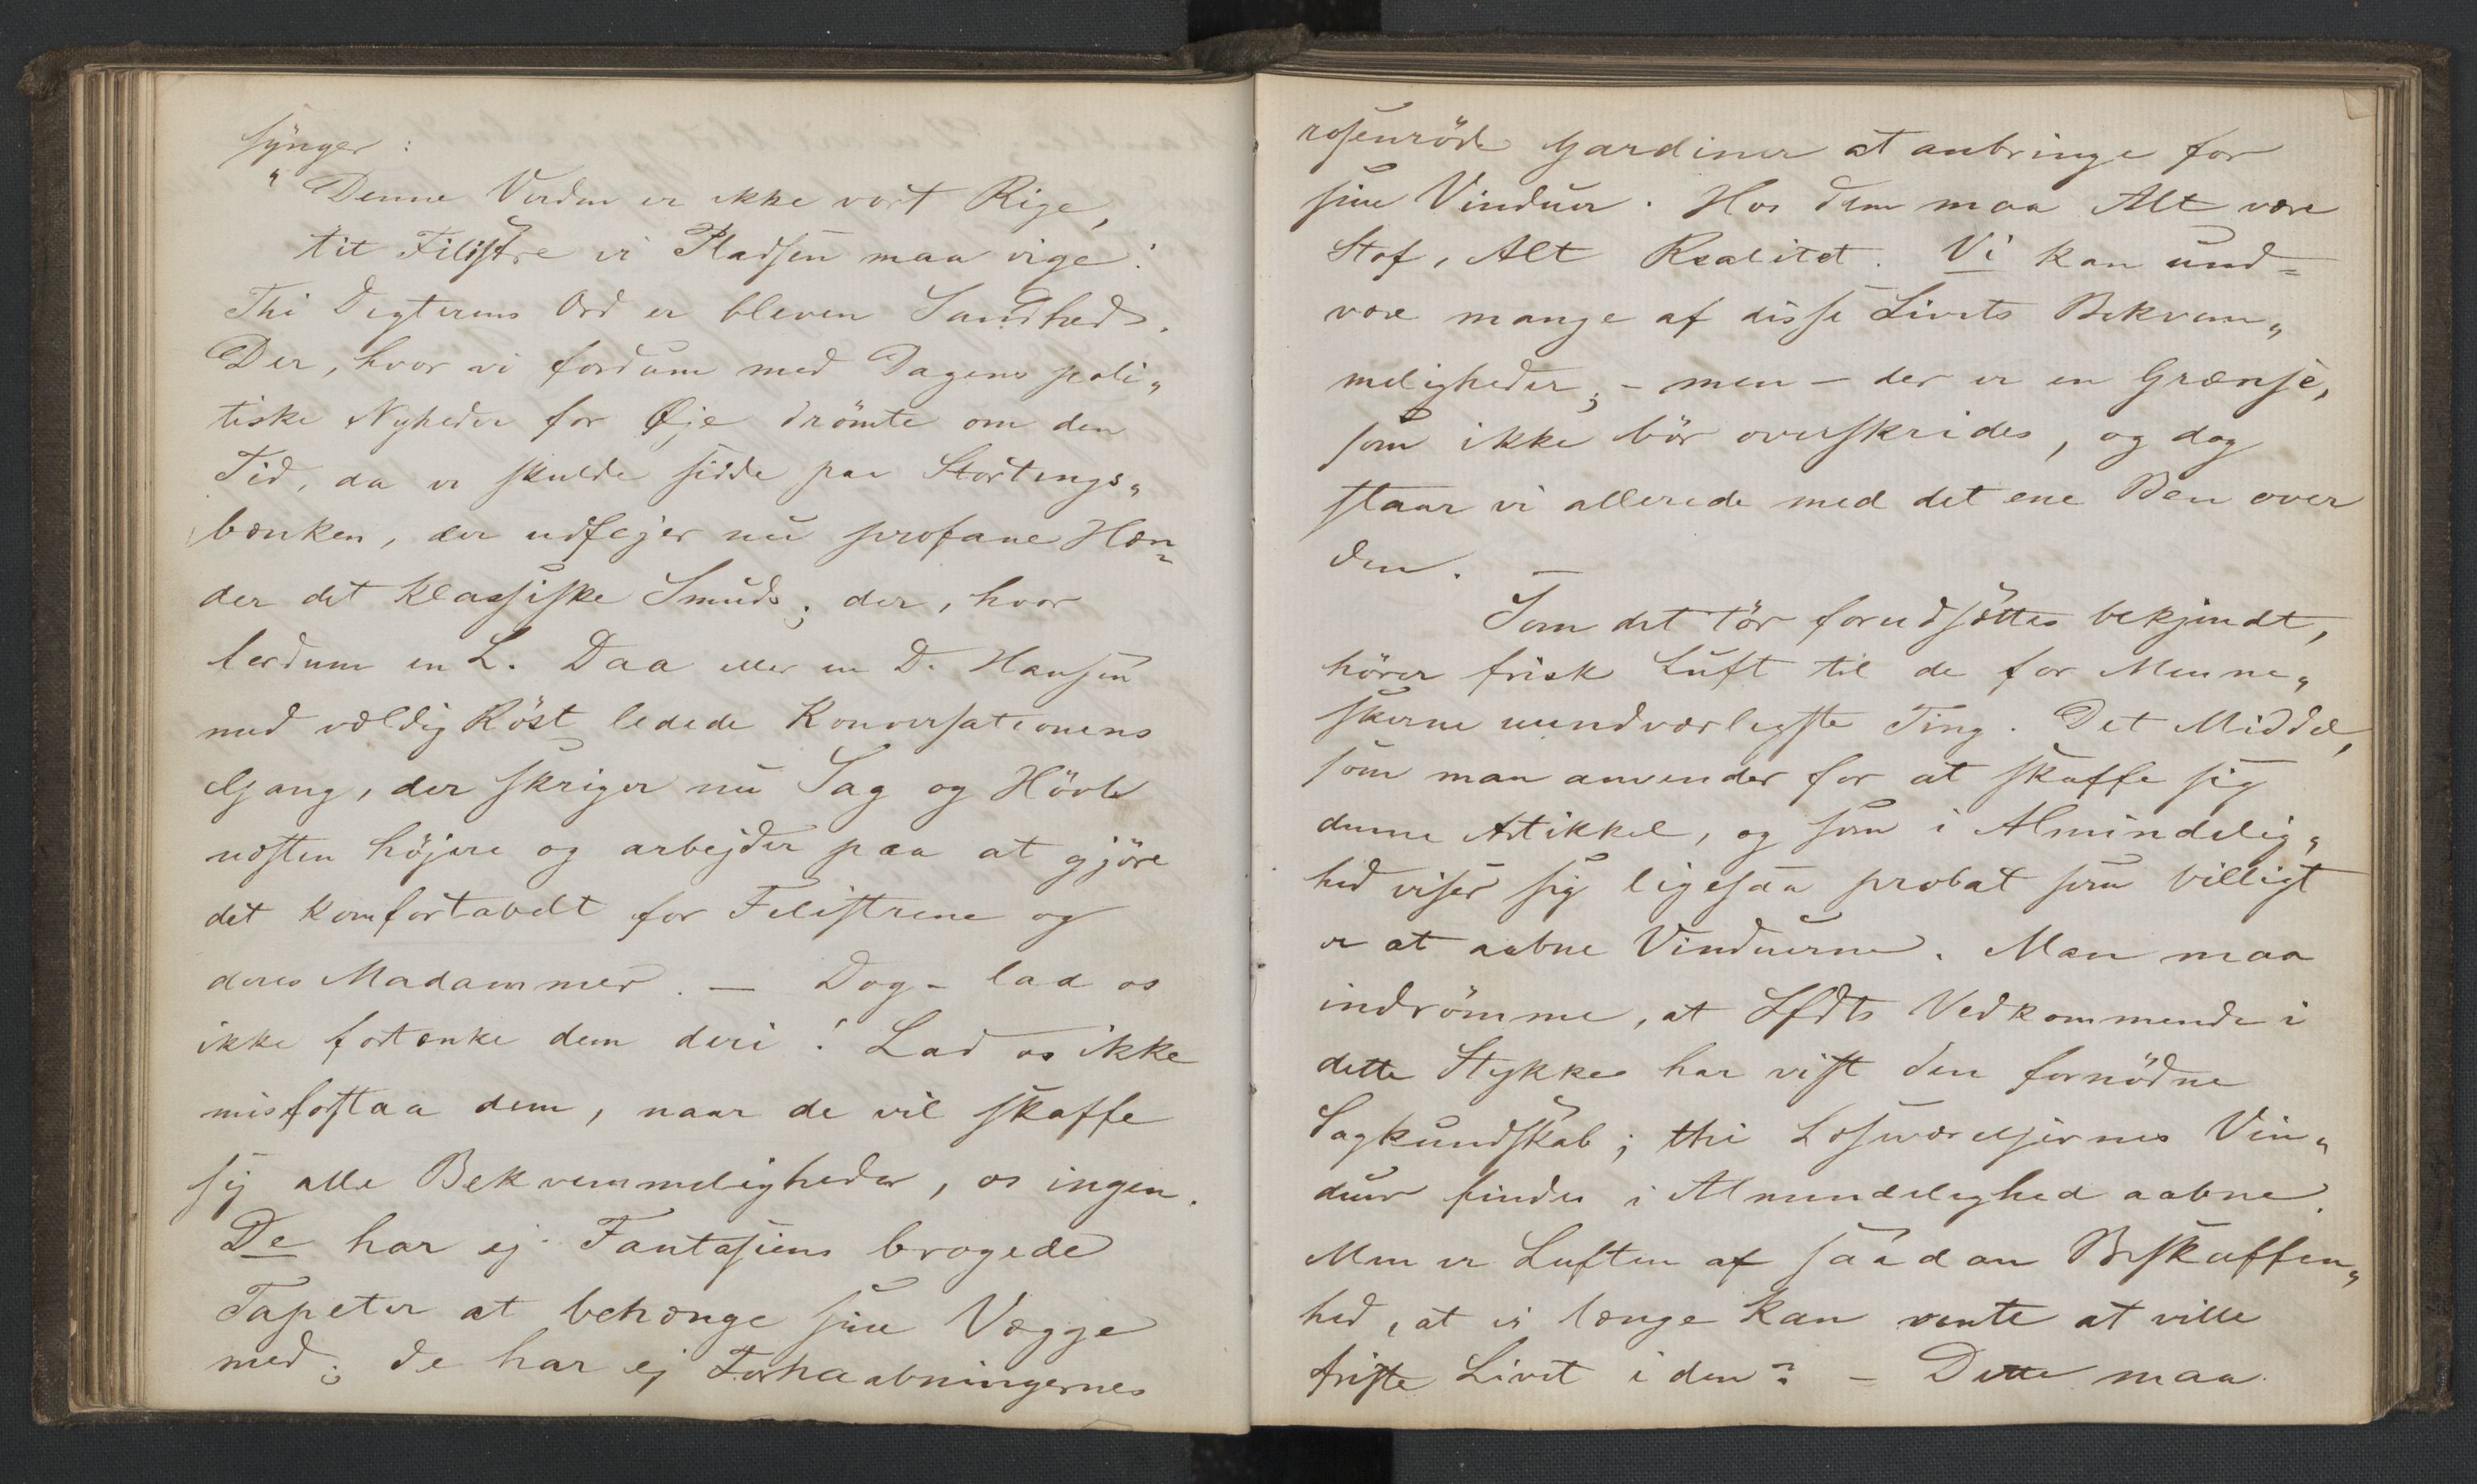 synger:
"Denne Verden er ikke vort Rige,
tit Filistre vi Pladsen maa vige!
Thi Degterens Ord er bleven Sandhed.
Der, hvor vi fordum med Dagens poli„
tiske Nyheder for Øje drömte om den
Tid, da vi skulde sidde paa Stortings„
bænken, der udfejer nu profane Hæn„
der det klassiske Smuds; der, hvor
fordum en L. Daa eller en D. Hansen
med vældig Röst ledede Konversationens
Gang, der skriger nu Sag og Hövl
næsten höjere og arbejder paa at gjöre
det komfortabelt for Filistrene og
deres Madammer. — Dog – lad os
ikke fortænke dem deri! Lad os ikke
misforstaa dem, naar de vil skaffe
sig alle Bekvemmeligheder, os ingen.
De har ej Fantasiens brogede
Tapeter at behænge sine Vægge
med; de har ej Forhaabningernes
rosenröde Gardiner at anbringe for
sine Vinduer. Hos dem maa Alt være
Stof, Alt Realitet. Vi kan und=
være mange af disse Livets Bekvem„
meligheder; – men – der er en Grænse,
som ikke bör overskrides, og dog
staar vi allerede med det ene Ben over
den.
Som det tör forudsættes bekjendt,
hörer frisk Luft til de for Menne„
skerne uundværligste Ting. Det Middel,
som man anvender for at skaffe sig
denne Artikkel, og som i Almindelig„
hed viser sig ligesaa probat som billigt
er at aabne Vinduerne. Man maa
indrömme, at Sfdts Vedkommende i
dette Stykke har vist den fornödne
Sagkundskab; thi Læseværelsernes Vin„
duer findes i Almindelighed aabne.
Men er Luften af saadan Beskaffen„
hed, at vi længe kan vente at ville
friste Livet i den? – Dette maa